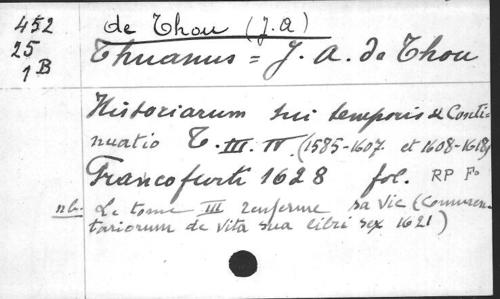 452
25
1 B
de Thou (J. A)
Thuanus = J. A. de Thou
Historiarum sui temporis & Conti-
nuatio T. III. IV. (1585-1607 et 1608-1618)
Francofurti 1628 fol. RP Fº
nb. Le tome III renferme sa vie (Commen-
tariorum de vita sua libri sex 1621)